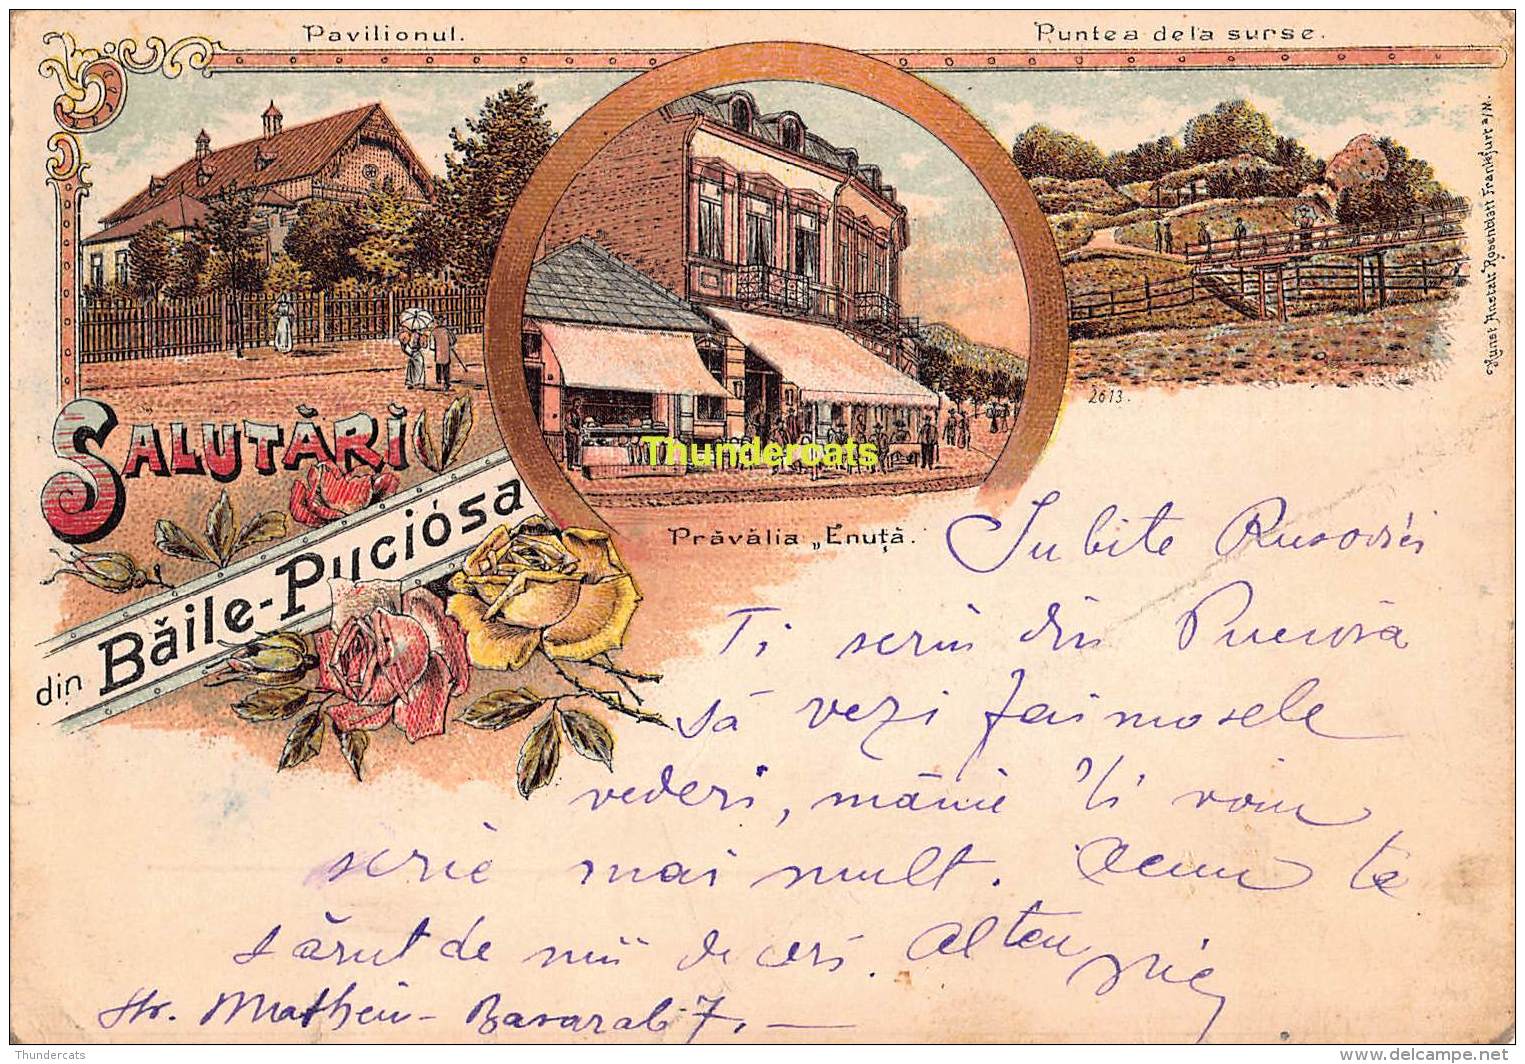 Pavilionul.
Puntea dela surse.
Kunst Anstalt Rosenblatt Frankfurt a/M.
2613.
SALUTĂRĬ
din Băile-Puciósa
Prăvălia „Enuță.
Thundercats
Iubite
Ti scriu din Puciosa
să vezi faimosele
vederi, mâine îti voiu
scrie mai mult. Acum te
sărut de mii de ori. Al teu
Str. Matheiu-Basarab 7. —
Thundercats
www.delcampe.net